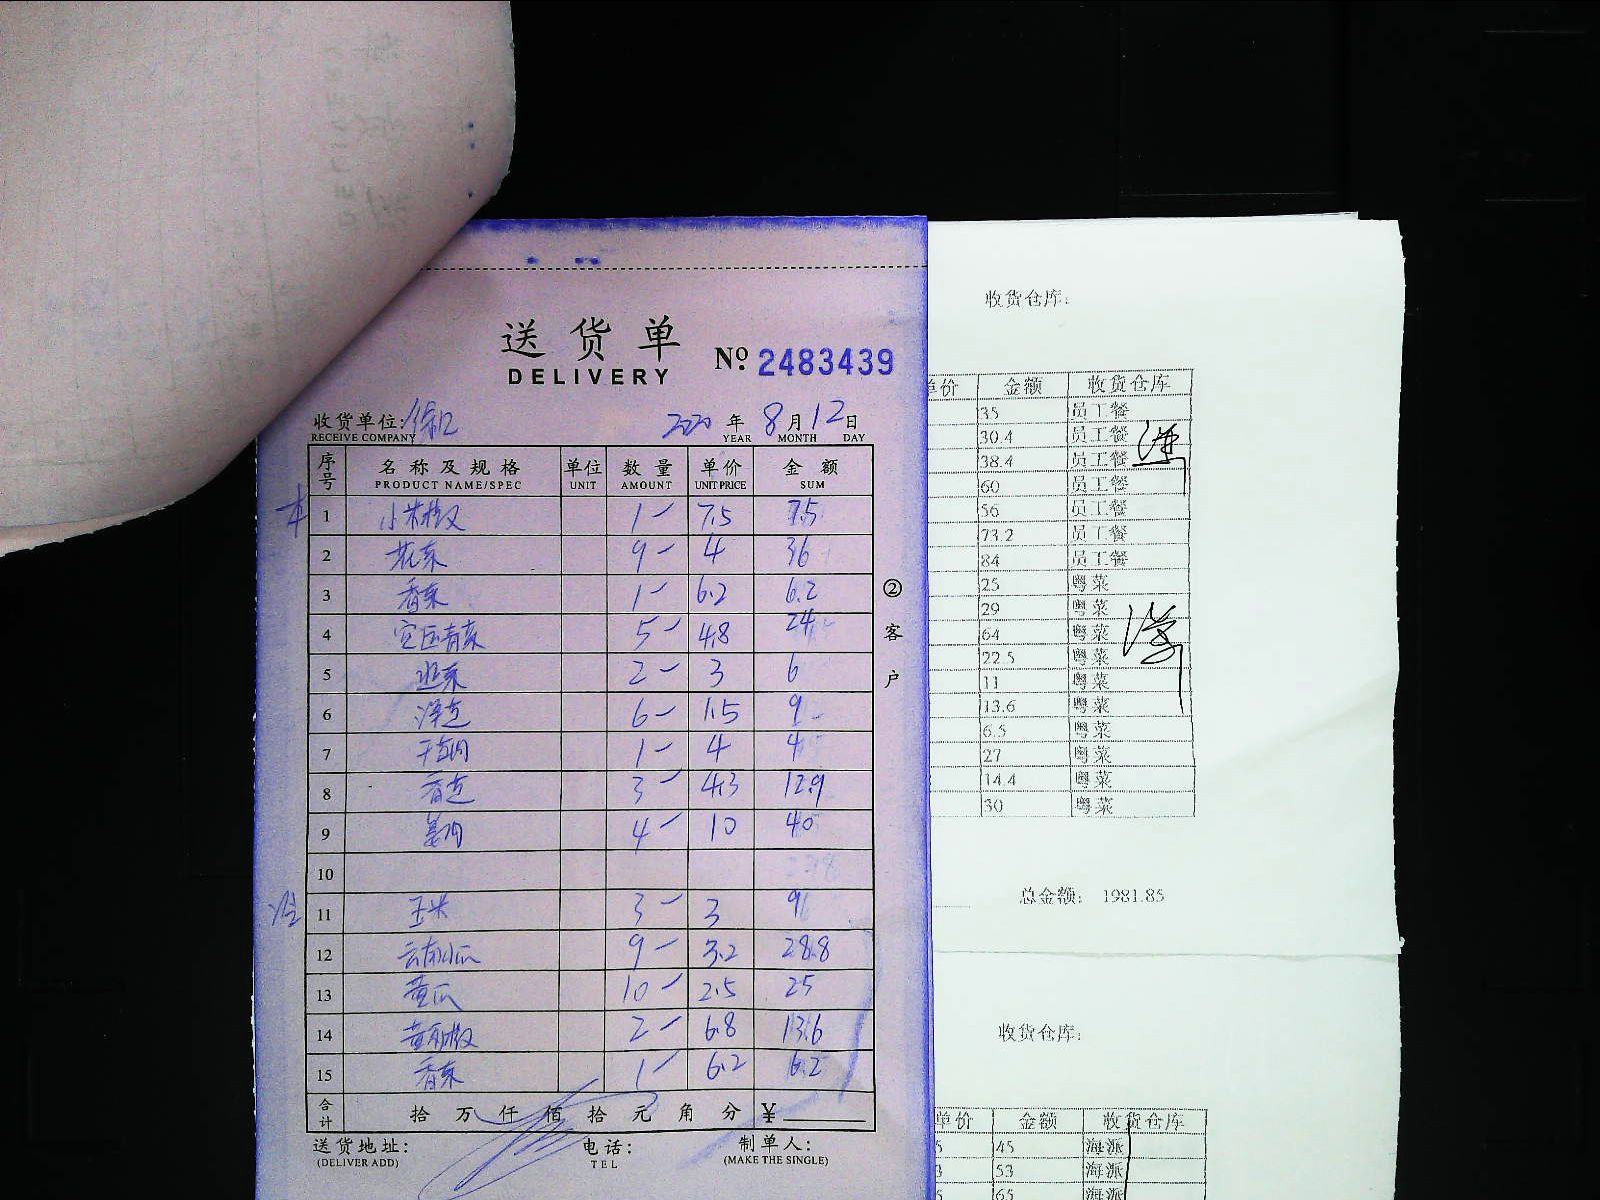 送货单
DELIVERY
No. 2483439
收货单位: 徐汇 2020年8月12日
RECEIVE COMPANY YEAR MONTH DAY
序号 名称及规格 单位 数量 单价 金额
PRODUCT NAME/SPEC UNIT AMOUNT UNIT PRICE SUM
1 小米椒 1 7.5 7.5
2 花菜 9 4 36
3 香菜 1 6.2 6.2
4 5 4.8 24
5 韭菜 2 3 6
6 洋芝 6 1.5 9
7 1 4 4
8 香芝 3 4.3 12.9
9 姜肉 4 10 40
10
11 玉米 3 3 9
12 云南小瓜 9 3.2 28.8
13 黄瓜 10 2.5 25
14 黄彩椒 2 6.8 13.6
15 香菜 1 6.2 6.2
合计 拾万仟佰拾元角分 ¥
送货地址: 电话: 制单人:
(DELIVER ADD) TEL (MAKE THE SINGLE)
②客户
收货仓库:
单价 金额 收货仓库
35 员工餐
30.4 员工餐
38.4 员工餐
60 员工餐
56 员工餐
73.2 员工餐
84 员工餐
25 粤菜
29 粤菜
64 粤菜
22.5 粤菜
11 粤菜
13.6 粤菜
6.5 粤菜
27 粤菜
14.4 粤菜
30 粤菜
总金额: 1981.85
收货仓库:
单价 金额 收货仓库
45 海派
53 海派
65 海派